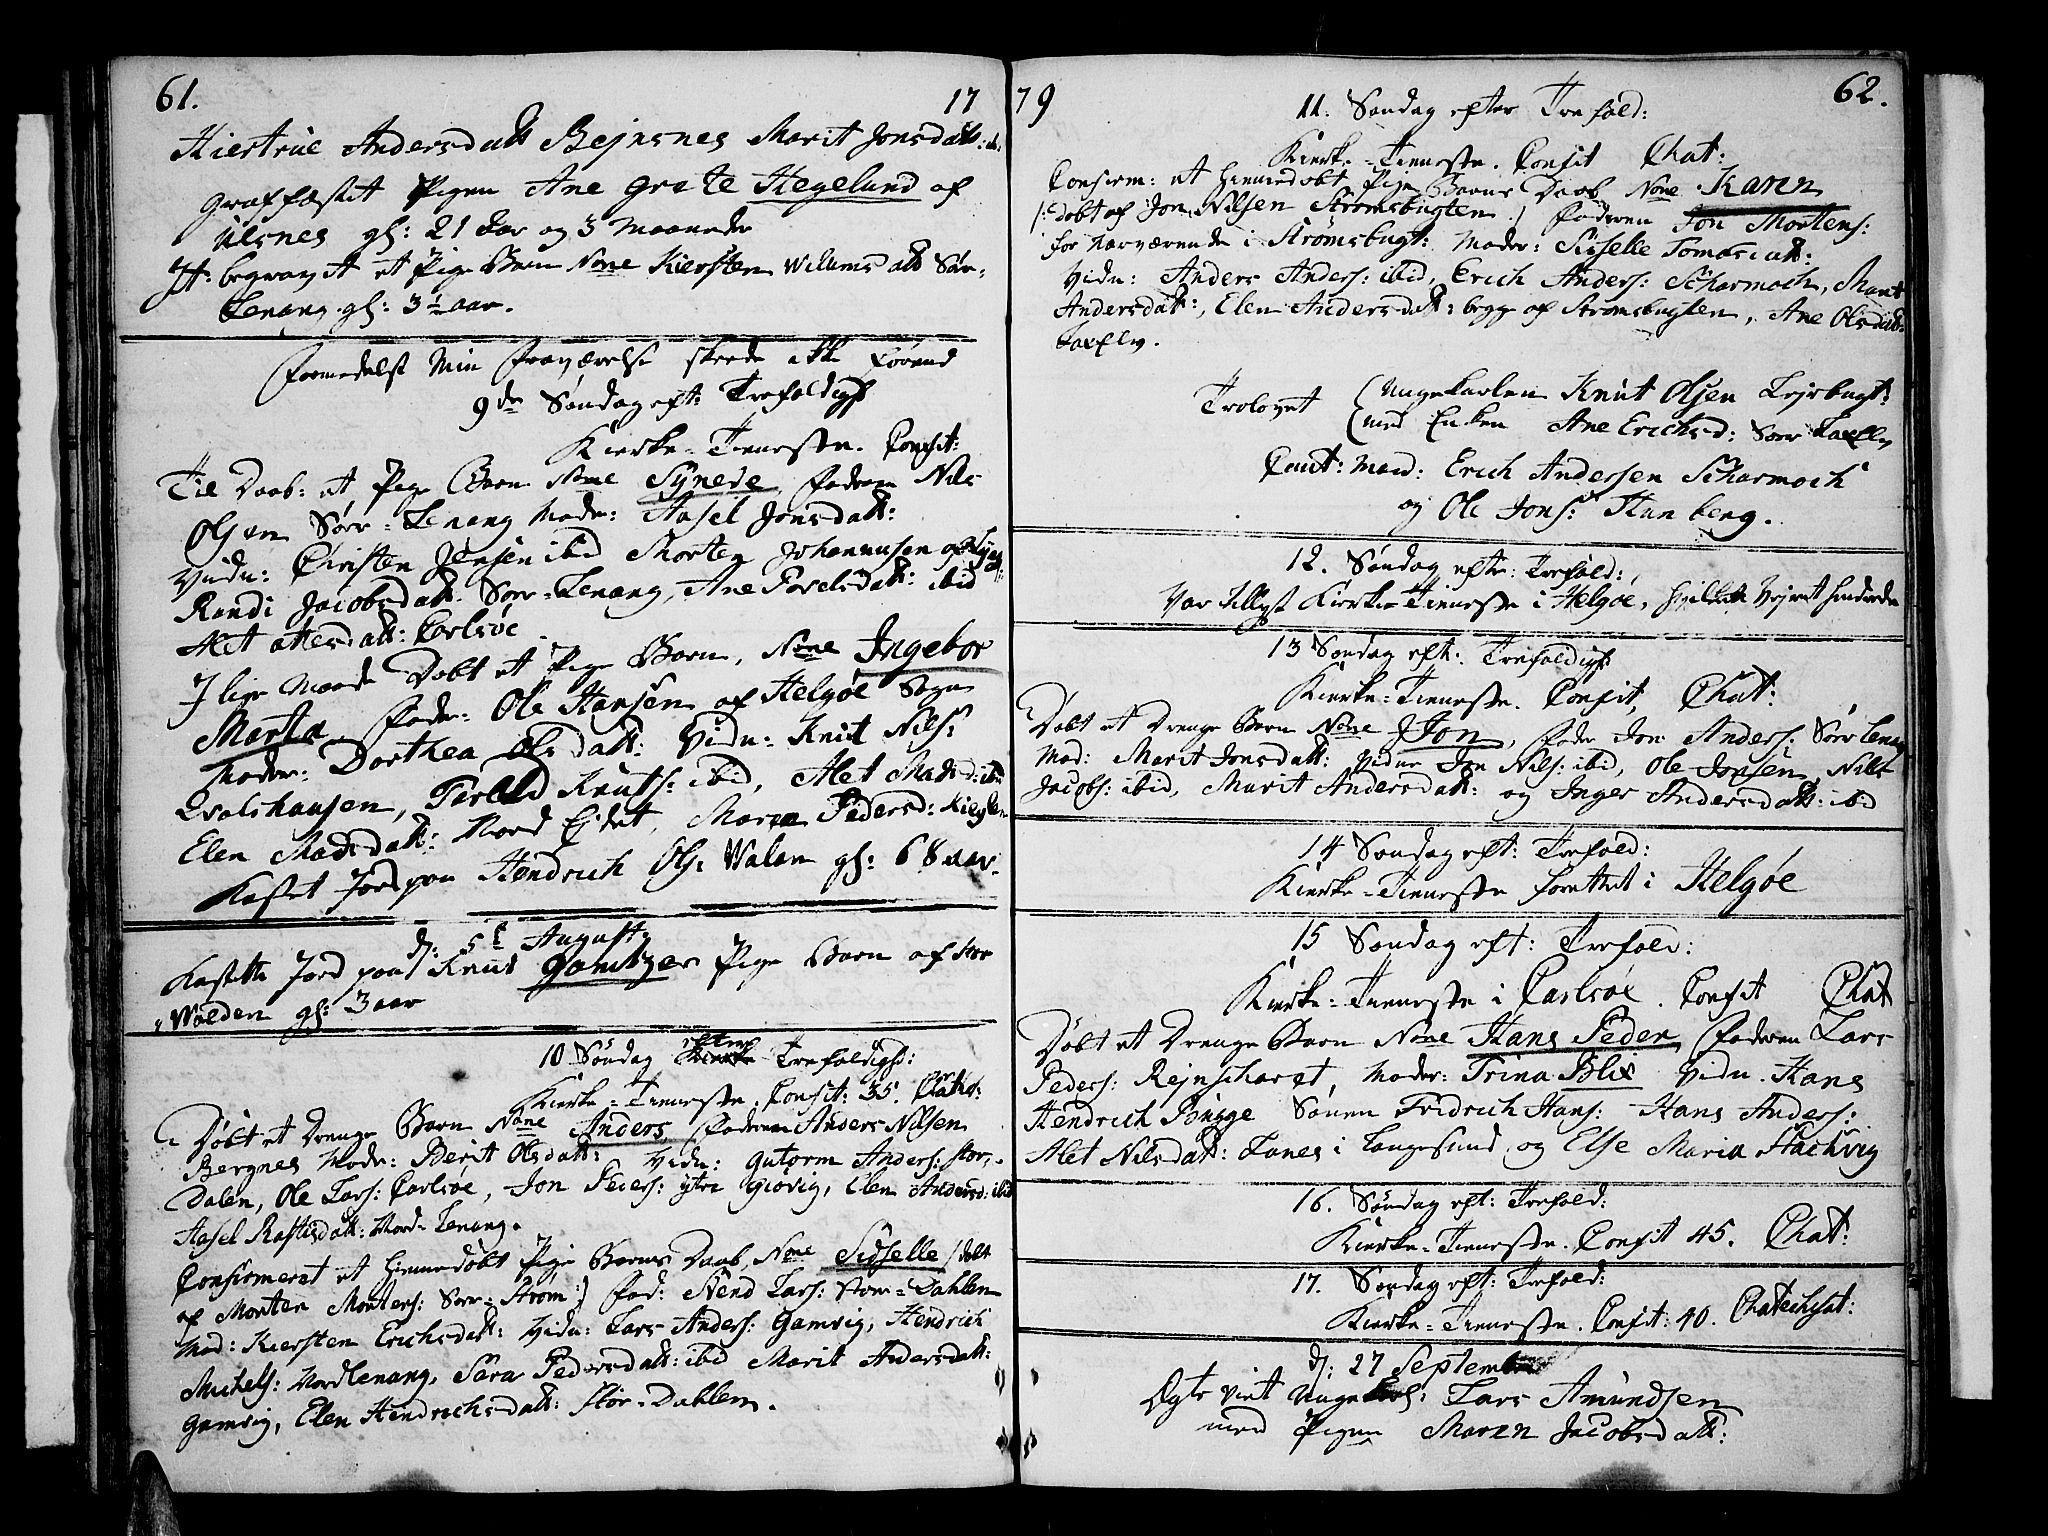 61.
17
Kiertrue Andersdatt Bejnsnes Marit Jonsdatt:
graffæstet Pigen Ane Grete Hegelund af
Ulsnes gl: 21 Aar og 3 Maaneder
It: begravet et Pige Barn None Kiersten Willumsdatt Sør-
Lenang. gl: 3 1/2 aar.
Formedelst Min Fraværelse skeede ikke førend
9de Søndag eft: Trefoldigh
Kierke-Tieneste. Confit:
Til Daab: et Pige Barn None Synève, Faderen Nils
Olsen Sørr-Lenang Moder: Aasel Jonsdatt:
Vidn: Christen Jensen ibid Morten Johannesen
Randi Jacobsdatt: Sørr-Lenang, Ane Povelsdatt: ibid
Alet Attersdatt: Carlsøe
I lige Maade Døbt et Pige Barn, None Ingebor
Marta, Fader: Ole Hansen af Helgøe Sogn
Moder: Dorthea Olsdatt: Vidn: Knut Nils:
Qvalshausen, Knuts: ibid, Alet Madsd: ibid
Elen Madsdatt: Nord Ejdet, Maren Pedersd:
Kastet Jord paa Hendrich Ols: Walan gl: 68 aar.
d: 5t August:
Kastette Jord paa Knut Gamitzer Pige Barn af Stor
Wolden gl: 3 aar
10 Søndag efter Trefoldighd:
Kierke-Tieneste. Confit: 35. Chatec:
Døbt et Drenge Barn None Anders, Faderen Anders Nilsen
Bergnes Moder: Berit Olsdatt: Vidn: Gutorm Anders: Stor-
Dalen, Ole Lars: Carlsøe, Jon Peders: ytre Giøvig, Elen Andersd: ibid
Aasel Rastisdatt: Nord-Lenang.
Confirmeret et Hiemmedøbt Pige Barns Daab, None Sidselle (døbt
af Morten Mortens: Sørr-Strøm:) Fad: Svend Lars: Stor-Dahlen
Mod: Kiersten Erichsdatt: Vidn: Lars Anders: Gamvig, Hendrich
Michels: Nordlenang, Sara Pedersdatt: ibid Marit Andersdatt:
Gamvig, Elen Hendrichsdatt: Stor-Dahlen.
79
62.
11. Søndag efter Trefold:
Kierke-Tieneste. Confit Chat:
Confirm: et Hiemmedøbt Pige Barns Daab None Karen
/: døbt af Jon Nilsen Strømsbugten :/ Faderen Jon Mortens:
for nærværende i Strømsbugt: Moder: Sisselle Tomasdatt:
Vidn: Anders Anders: ibid, Erich Anders: Scharmoch, Marit
Andersdatt:, Elen Andersdatt: begge af Strømsbugten, Ane Olsdatt:
Laxelv.
Trolovet (Ungekarlen Knut Olsen Lejrbugt:
(med Enken Ane Erichsd: Sørr Laxelv
Caut: Mænd: Erich Andersen Scharmoch
og Ole Jons: Stanberg.
12. Søndag efter: Trefold:
Var tillyst Kierke-Tieneste i Helgøe, hvilket Vejret hindrede
13 Søndag eft: Trefoldigh
Kierke-Tieneste. Confit, Chat:
Døbt et Drenge Barn None Jon, Fader Jon Anders: Sørr Lenang
Mod: Marit Jonsdatt: Vidne Jon Nils: ibid, Ole Jonsen, Nils
Jacobs: ibid, Marit Andersdatt: og Inger Andersdatt: ibid
14 Søndag eft: Trefold:
Kierke-Tieneste forrettet i Helgøe
15 Søndag eft: Trefold:
Kierke-Tieneste i Carlsøe. Confit Chat
Døbt et Drenge Barn None Hans Peder, Faderen Lars
Peders: Rejnscharet, Moder: Trina Blix Vidn. Hans
Hendrich Bugge Sønen Fridrich Hans: Hans Anders:
Alet Nilsdatt: Lanes i Langesund og Else Maria Hachvig
16. Søndag eft: Trefold:
Kierke-Tieneste. Confit 45. Chat:
17. Søndag eft: Trefold:
Kierke-Tieneste. Confit: 40. Chatechisat:
d: 27 September
Ægte viet Ungekarl: Lars Amundsen
med Pigen Maren Jacobsdatt: